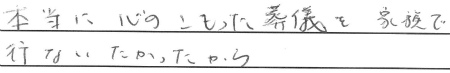 本当に心のこもった葬儀を家族で
行ないたかったから